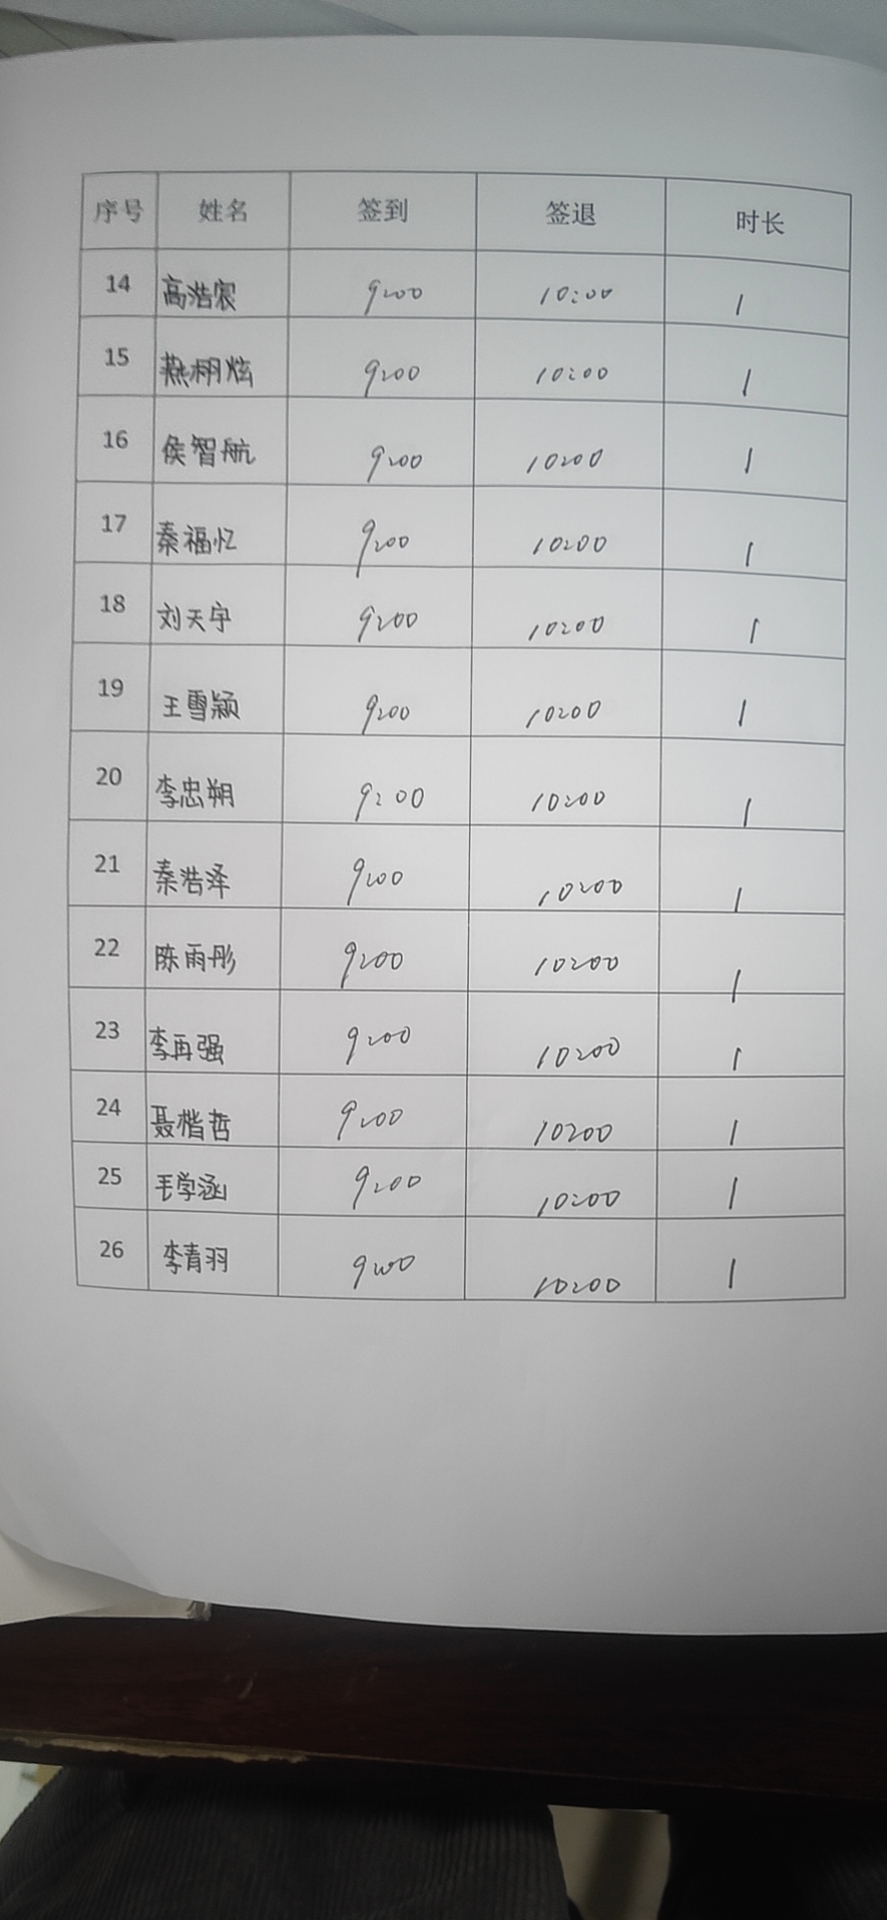 序号 姓名 签到 签退 时长
14 高浩宸 9:00 10:00 1
15 燕栩炫 9:00 10:00 1
16 侯智航 9:00 10:00 1
17 秦福忆 9:00 10:00 1
18 刘天宇 9:00 10:00 1
19 王雪颖 9:00 10:00 1
20 李忠朔 9:00 10:00 1
21 秦浩泽 9:00 10:00 1
22 陈雨彤 9:00 10:00 1
23 李再强 9:00 10:00 1
24 聂楷哲 9:00 10:00 1
25 毛学涵 9:00 10:00 1
26 李青羽 9:00 10:00 1